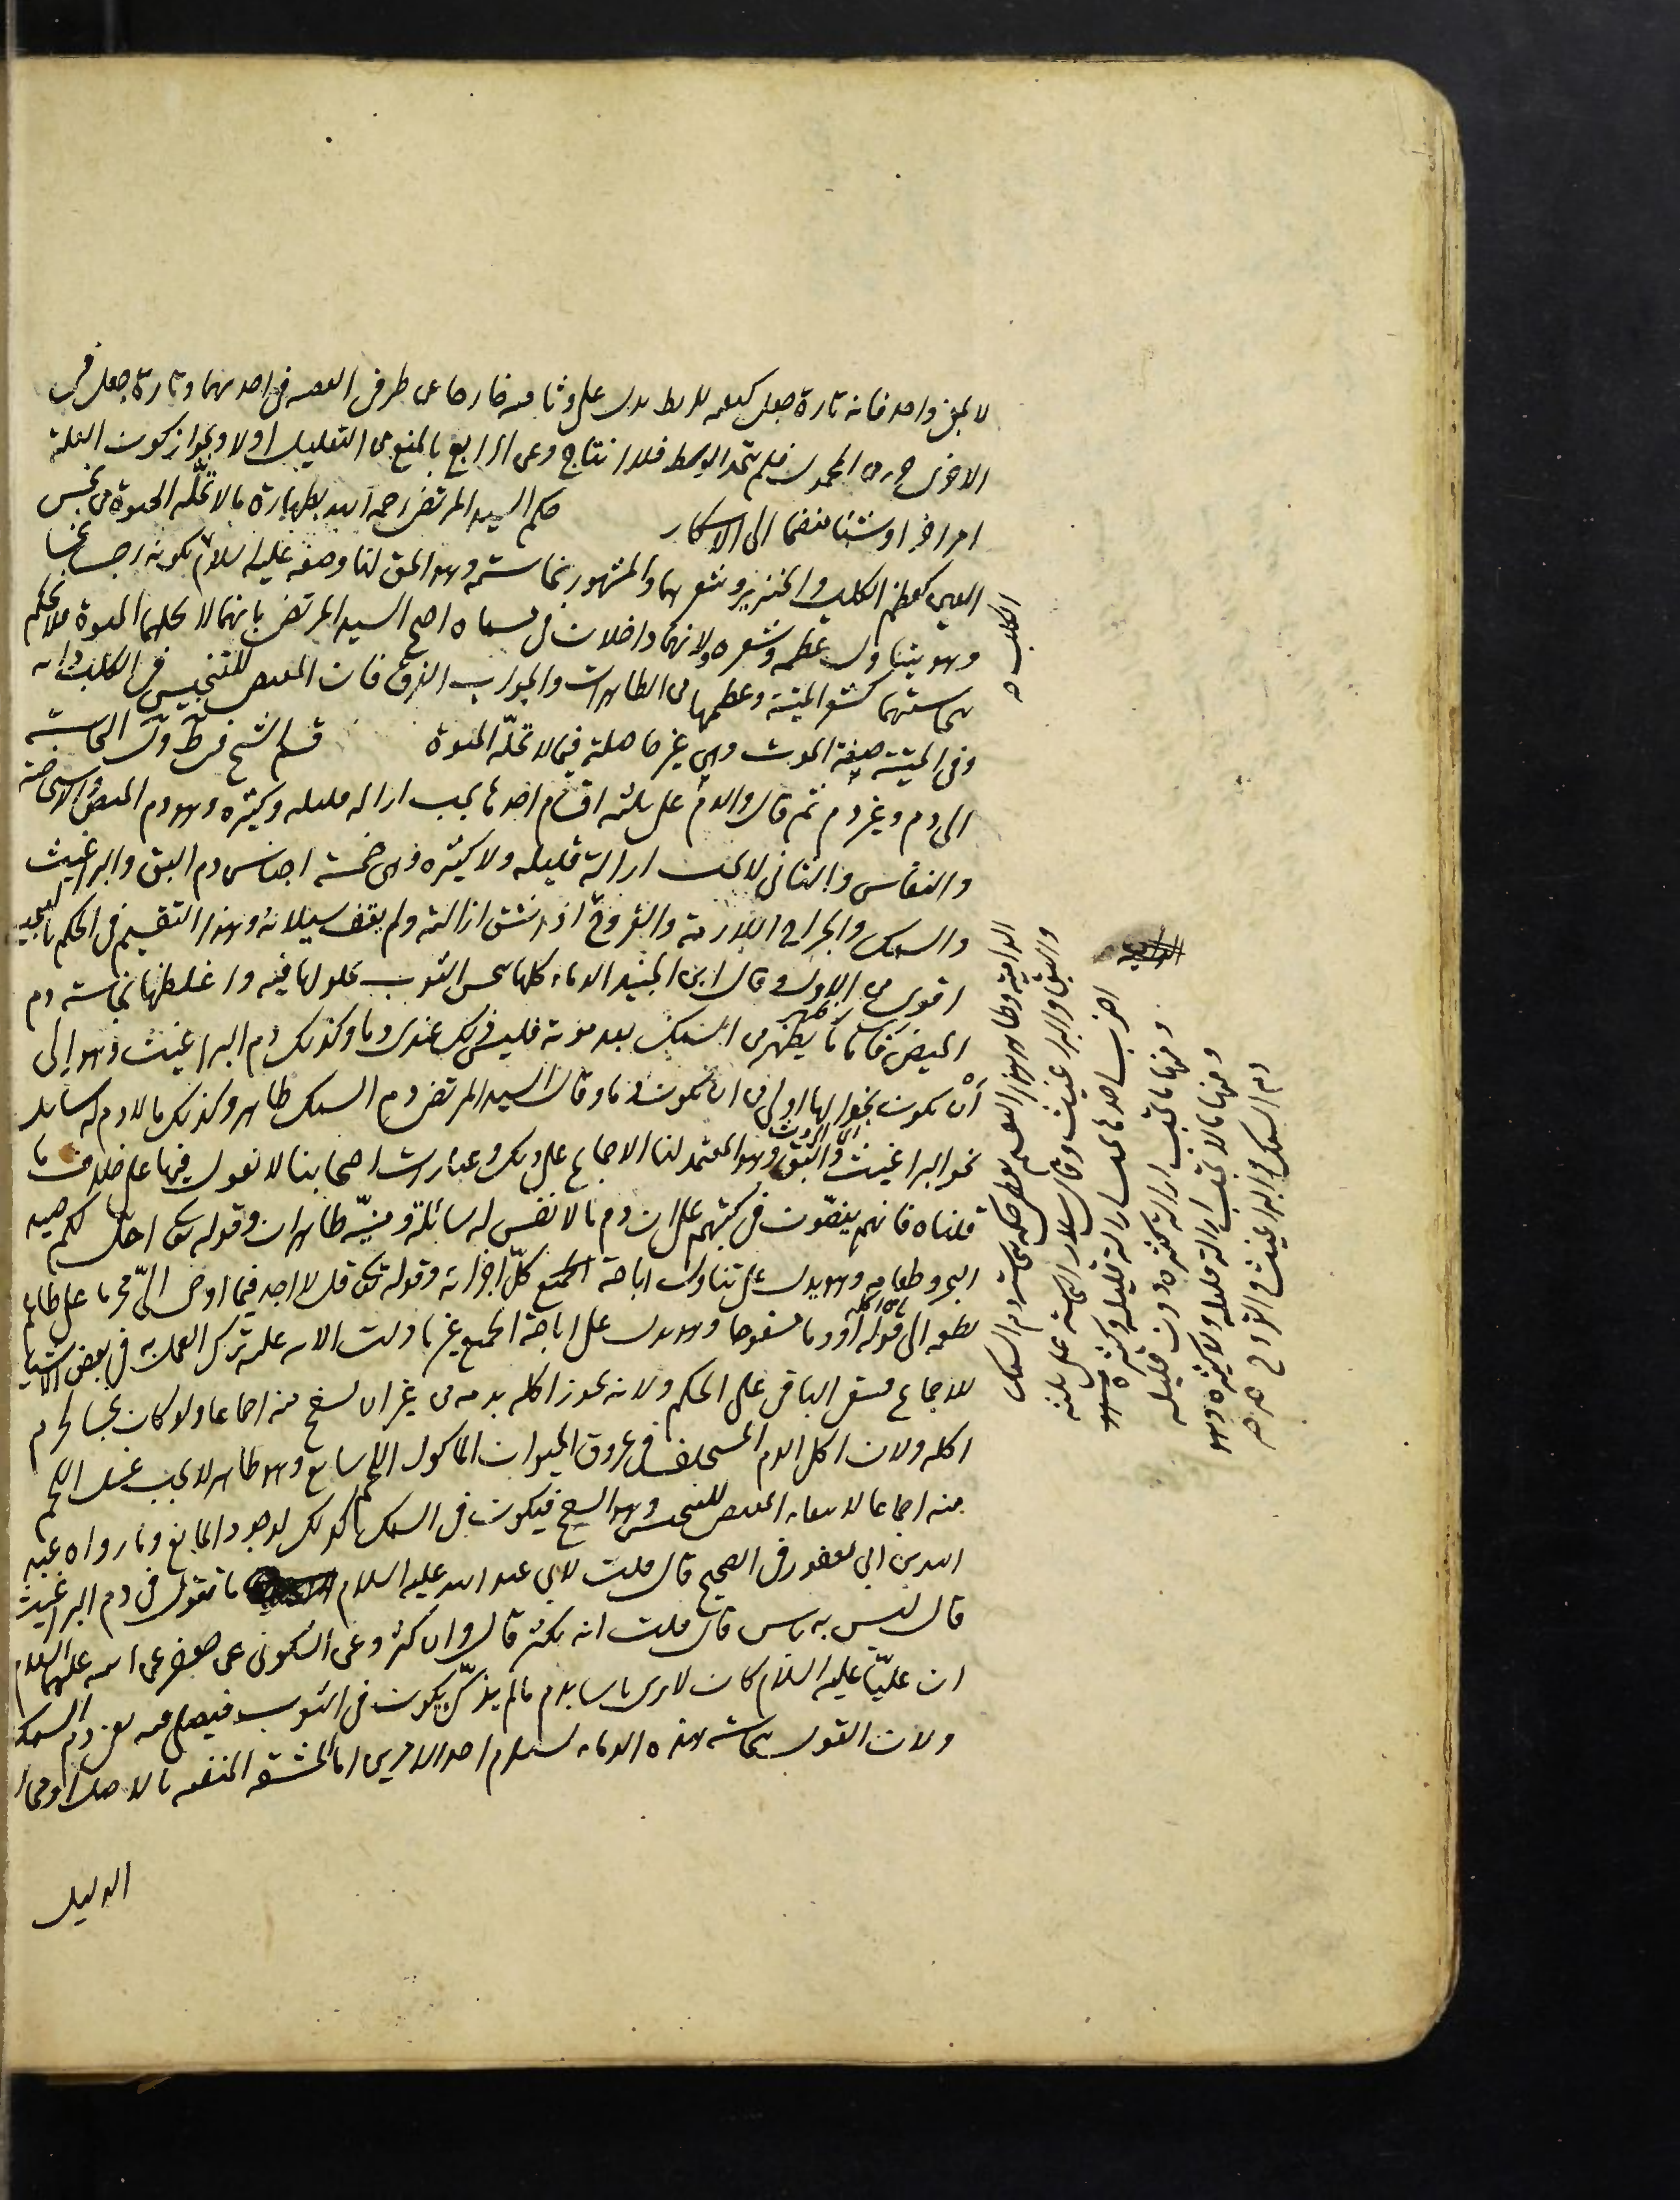 لا بمعنى واحد فانه تارة جعل كلمة للربط يدل على وثاقته خارجا عن طرفى القضية فى احديهما وتارة جعل فى
الاخرى جزء من المحمول فلم يتحد الوسط فلا انتاج وعن الرابع بالمنع من التعليل اولا وبجواز كون العلة
امرا اخر او شيئا منضما الى الاسكار حكم السيد المرتضى رحمه الله بطهارة ما لا تحله الحيوة من نجس
العين كعظم الكلب والخنزير وشعرهما والمشهور نجاسته وهو الحق لنا وصفه عليه السلام بكونه رجسا نجسا
وهو يتناول عظمه وشعره ولانهما داخلان فى مسماه احتج السيد المرتضى بانهما لا تحلهما الحيوة فلا نحكم
بنجاستهما كشعر الميتة وعظمها من الطاهرات والجواب الفرق فان المقتضى للتنجيس فى الكلب ذاته
وفى الميتة صفة الموت وهى غير حاصلة فيما لا تحله الحيوة قسم الشيخ فى ط وف النجاسة
الى دم وغير دم ثم قال والدم على ثلثه اقسام احدها يجب ازالة قليله وكثيره وهو دم الحيض والاستحاضة
والنفاس والثانى لا يجب ازالة قليله ولا كثيره وهى خمسة اجناس دم البق والبراغيث
والسمك والجراح اللازمة والقروح اذا شق ازالته ولم يقف سيلانه وهذا التقسيم فى الحكم بالجيد
اقوى من الاول وقال ابن الجنيد الدماء كلها تنجس الثوب بحلولها فيه واغلظها نجاسة دم
الحيض فاما ما يظهر من السمك بعد موته فليس ذلك عندى دما وكذلك دم البراغيث وهو الى
أن يكون نجوا لها اولى من ان يكون دما وقال السيد المرتضى دم السمك طاهر وكذلك ما لا دم له سائل
نحو البراغيث والبق وهو المعتمد لنا الاجماع على ذلك وعبارات اصحابنا لا نعول فيها على خلاف ما
قلناه فانهم ينصون فى كتبهم على ان دم ما لا نفس له سائلة وميته طاهران وقوله تعالى احل لكم صيد
البحر وطعامه وهو يدل على تناول اباحة الجميع كل اجزائه وقوله تعالى قل لا اجد فيما اوحى الى محرما على طاعم
يطعمه الى قوله أو دما مسفوحا وهو يدل على اباحة الجميع غير ما دلت الاية عليه ترك العمل به فى بعض الاشياء
للاجماع فيبقى الباقى على الحكم ولانه يجوز اكله بدمه من غير ان يسفح منه اجماعا ولو كان نجسا لحرم
اكله ولان اكل الدم المتخلف فى عروق الحيوان الماكول اللحم سايغ وهو طاهر لا يجب غسل اللحم
منه اجماعا لانتفاء المقتضى للتنجيس وهو السفح فيكون فى السمك كذلك لوجود المانع وما رواه عبد
الله بن ابى يعفور فى الصحيح قال قلت لابى عبد الله عليه السلام ما تقول فى دم البراغيث
قال ليس به باس قال قلت انه يكثر قال وان كثر وعن السكونى عن جعفر عن ابيه عليهما السلام
ان عليّا عليه السلام كان لا يرى باسا بدم ما لم يذكّ يكون فى الثوب فيصلى فيه يعنى دم السمك
ولان القول بنجاسة هذه الدماء يستلزم احد الامرين اما المشقة المنفية بالاصل او مخالفة
الدليل
الكلب
الدامية وظاهر هذا التقسيم يعطى حكمه بنجاسة دم السمك
والبق والبراغيث وقال سلار النجاسة على ثلثه
اضرب احدها يجب ازالة قليله وكثيره
ومنها ما تجب ازالة كثيره دون قليله
ومنها ما لا تجب ازالة قليله ولا كثيره وهو
دم السمك والبراغيث والقروح